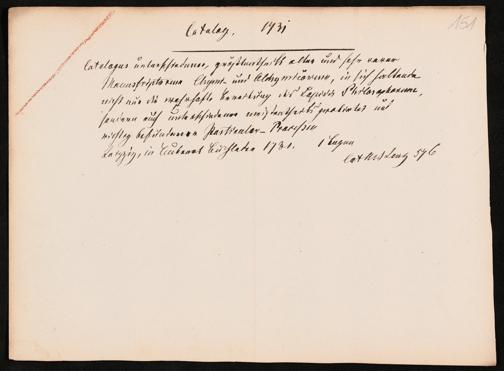 151
Catalog. 1731
Catalogus unterschiedener, größtentheils alter und sehr rarer
Manuscriptorum Chym. und Alchymicorum, in sich haltende
nicht nur die wahrhafte Bereitung des Lapidis Philosophorum,
sondern auch unterschiedene meistentheils probirte und
richtig befundene Particular-Processe
Leipzig, in Buchladen 1731. 1 Bogen
Cat. 576